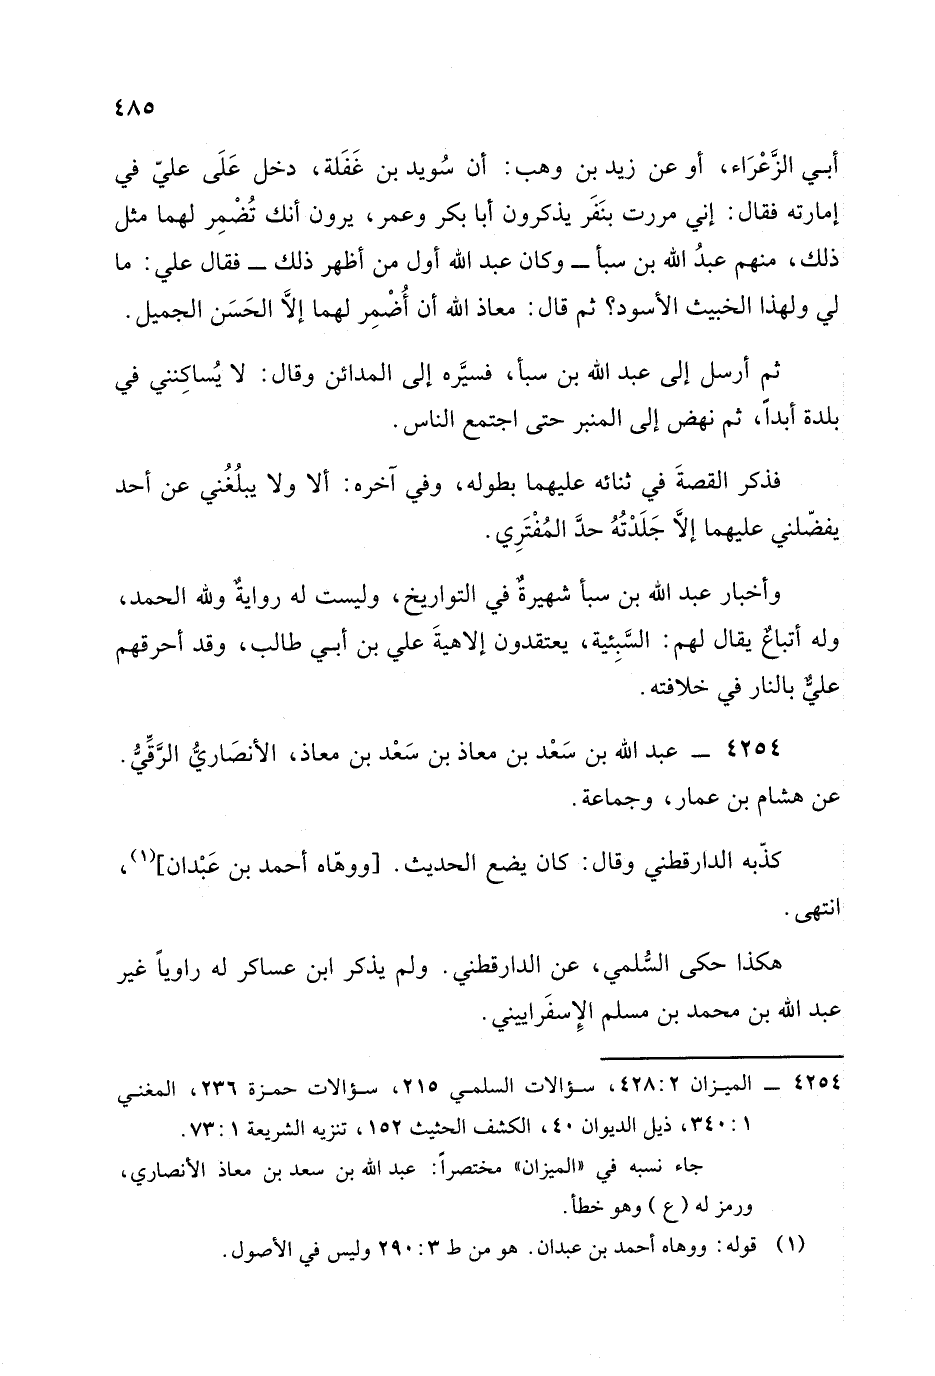 ٤٨٥
أبي الزَّعْرَاء، أو عن زيد بن وهب: أن سُويد بن غَفَلة، دخل عَلَى عليّ في
إمارته فقال: إني مررت بنَفَر يذكرون أبا بكر وعمر، يرون أنك تُضْمِر لهما مثل
ذلك، منهم عبدُ الله بن سبأ ــ وكان عبد الله أول من أظهر ذلك ــ فقال علي: ما
لي ولهذا الخبيث الأسود؟ ثم قال: معاذ الله أن أُضْمِر لهما إلاَّ الحَسَن الجميل.
ثم أرسل إلى عبد الله بن سبأ، فسيَّره إلى المدائن وقال: لا يُساكِنني في
بلدة أبداً، ثم نهض إلى المنبر حتى اجتمع الناس.
فذكر القصةَ في ثنائه عليهما بطوله، وفي آخره: ألا ولا يبلُغُني عن أحد
يفضّلني عليهما إلاَّ جَلَدْتُهُ حدَّ المُفْتَرِي.
وأخبار عبد الله بن سبأ شهيرةٌ في التواريخ، وليست له روايةٌ ولله الحمد،
وله أتباعٌ يقال لهم: السَّبِئية، يعتقدون إلاهيةَ علي بن أبي طالب، وقد أحرقهم
عليٌّ بالنار في خلافته.
٤٢٥٤ ــ عبد الله بن سَعْد بن معاذ بن سَعْد بن معاذ، الأنصَاريُّ الرَّقِّيُّ.
عن هشام بن عمار، وجماعة.
كذّبه الدارقطني وقال: كان يضع الحديث. [ووهّاه أحمد بن عَبْدان](١)،
انتهى.
هكذا حكى السُّلمي، عن الدارقطني. ولم يذكر ابن عساكر له راوياً غير
عبد الله بن محمد بن مسلم الإِسفَراييني.
٤٢٥٤ ــ الميزان ٢: ٤٢٨، سؤالات السلمي ٢١٥، سؤالات حمزة ٢٣٦، المغني
١: ٣٤٠، ذيل الديوان ٤٠، الكشف الحثيث ١٥٢، تنزيه الشريعة ١: ٧٣.
جاء نسبه في «الميزان» مختصراً: عبد الله بن سعد بن معاذ الأنصاري،
ورمز له (ع) وهو خطأ.
(١) قوله: ووهاه أحمد بن عبدان. هو من ط ٣: ٢٩٠ وليس في الأصول.